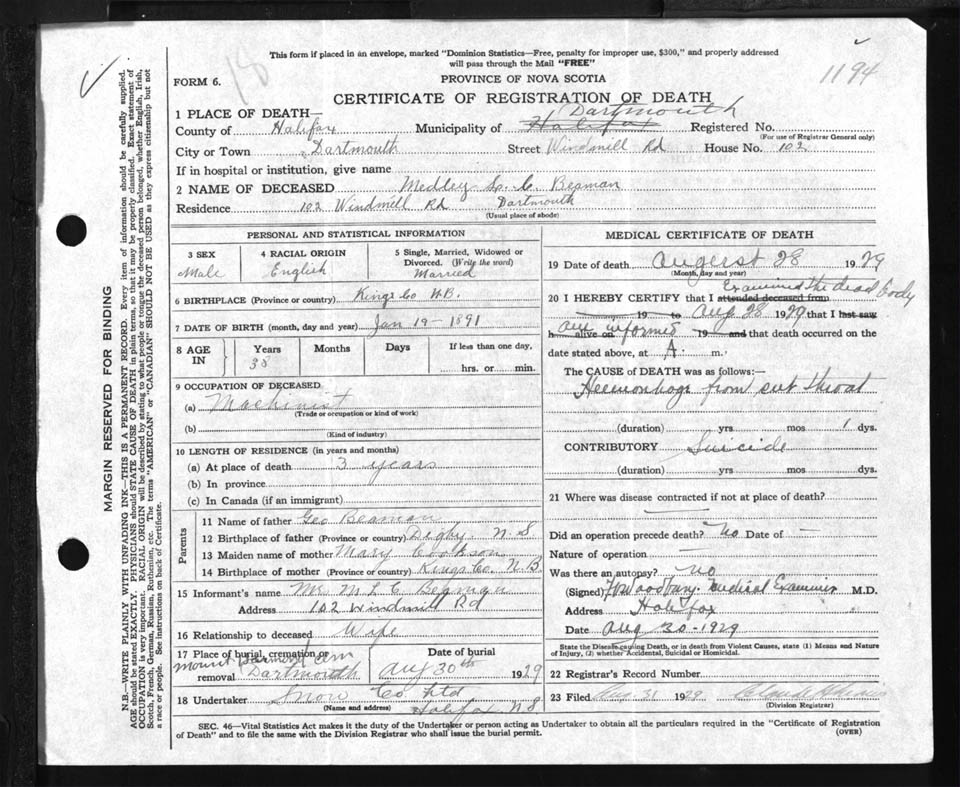 This form if placed in an envelope, marked "Dominion Statistics—Free, penalty for improper use, $300," and properly addressed
will pass through the Mail "FREE"
18
1194
FORM 6.
PROVINCE OF NOVA SCOTIA
CERTIFICATE OF REGISTRATION OF DEATH
1 PLACE OF DEATH—
Dartmouth
County of Halifax Municipality of Halifax Registered No.
(For use of Registrar General only)
City or Town Dartmouth Street Windmill Rd House No. 102
If in hospital or institution, give name
2 NAME OF DECEASED Medley L. C. Beaman
Residence 102 Windmill Rd Dartmouth
(Usual place of abode)
PERSONAL AND STATISTICAL INFORMATION
3 SEX
Male
4 RACIAL ORIGIN
English
5 Single, Married, Widowed or
Divorced. (Write the word)
Married
6 BIRTHPLACE (Province or country) Kings Co N.B.
7 DATE OF BIRTH (month, day and year) Jan 19-1891
8 AGE
IN
Years
38
Months
Days
If less than one day,
hrs. or min.
9 OCCUPATION OF DECEASED
(a) Machinist
(Trade or occupation or kind of work)
(b)
(Kind of industry)
10 LENGTH OF RESIDENCE (in years and months)
(a) At place of death 3 years
(b) In province
(c) In Canada (if an immigrant)
Parents
11 Name of father Geo Beaman
12 Birthplace of father (Province or country) Digby N.S.
13 Maiden name of mother Mary Cookson
14 Birthplace of mother (Province or country) Kings Co. N.B.
15 Informant's name Mrs M L C Beaman
Address 102 Windmill Rd
16 Relationship to deceased Wife
17 Place of burial, cremation or
removal
Mount Hermon Cem
Dartmouth
Date of burial
Aug 30th 1929
18 Undertaker Snow Co Ltd
(Name and address) Halifax N.S
MEDICAL CERTIFICATE OF DEATH
19 Date of death August 28 1929
(Month, day and year)
Examined the dead body
20 I HEREBY CERTIFY that I attended deceased from
19 to Aug 28 1929 that I last saw
am informed
h alive on 19 and that death occurred on the
date stated above, at A m.
The CAUSE OF DEATH was as follows:—
Heemorrhage from cut throat
(duration) yrs mos 1 dys.
CONTRIBUTORY Suicide
(duration) yrs mos dys.
21 Where was disease contracted if not at place of death?
Did an operation precede death? No Date of —
Nature of operation —
Was there an autopsy? No
(Signed) Medical Examiner M.D.
Address Halifax
Date Aug 30-1929
State the Disease causing Death, or in death from Violent Causes, state (1) Means and Nature
of Injury, (2) whether Accidental, Suicidal or Homicidal.
22 Registrar's Record Number
23 Filed Aug. 31 1929
(Division Registrar)
SEC. 46—Vital Statistics Act makes it the duty of the Undertaker or person acting as Undertaker to obtain all the particulars required in the "Certificate of Registration
of Death" and to file the same with the Division Registrar who shall issue the burial permit.
(OVER)
MARGIN RESERVED FOR BINDING
N.B.—WRITE PLAINLY WITH UNFADING INK—THIS IS A PERMANENT RECORD. Every item of information should be carefully supplied.
AGE should be stated EXACTLY. PHYSICIANS should STATE CAUSE OF DEATH in plain terms, so that it may be properly classified. Exact statement of
OCCUPATION is very important. RACIAL ORIGIN will be described by stating to what people or tongue the deceased person belonged, whether English, Irish,
Scotch, French, German, Russian, Ruthenian, etc. The terms "AMERICAN" or "CANADIAN" SHOULD NOT BE USED as they express citizenship but not
a race or people. See instructions on back of Certificate.